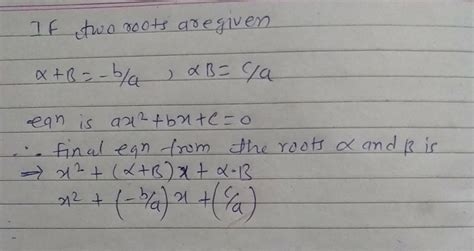 If two roots are given
α+β = -b/a , αβ = c/a
eqn is ax²+bx+c=0
∴ final eqn from the roots α and β is
⇒ x² + (α+β)x + α·β
x² + (-b/a) x + (c/a)